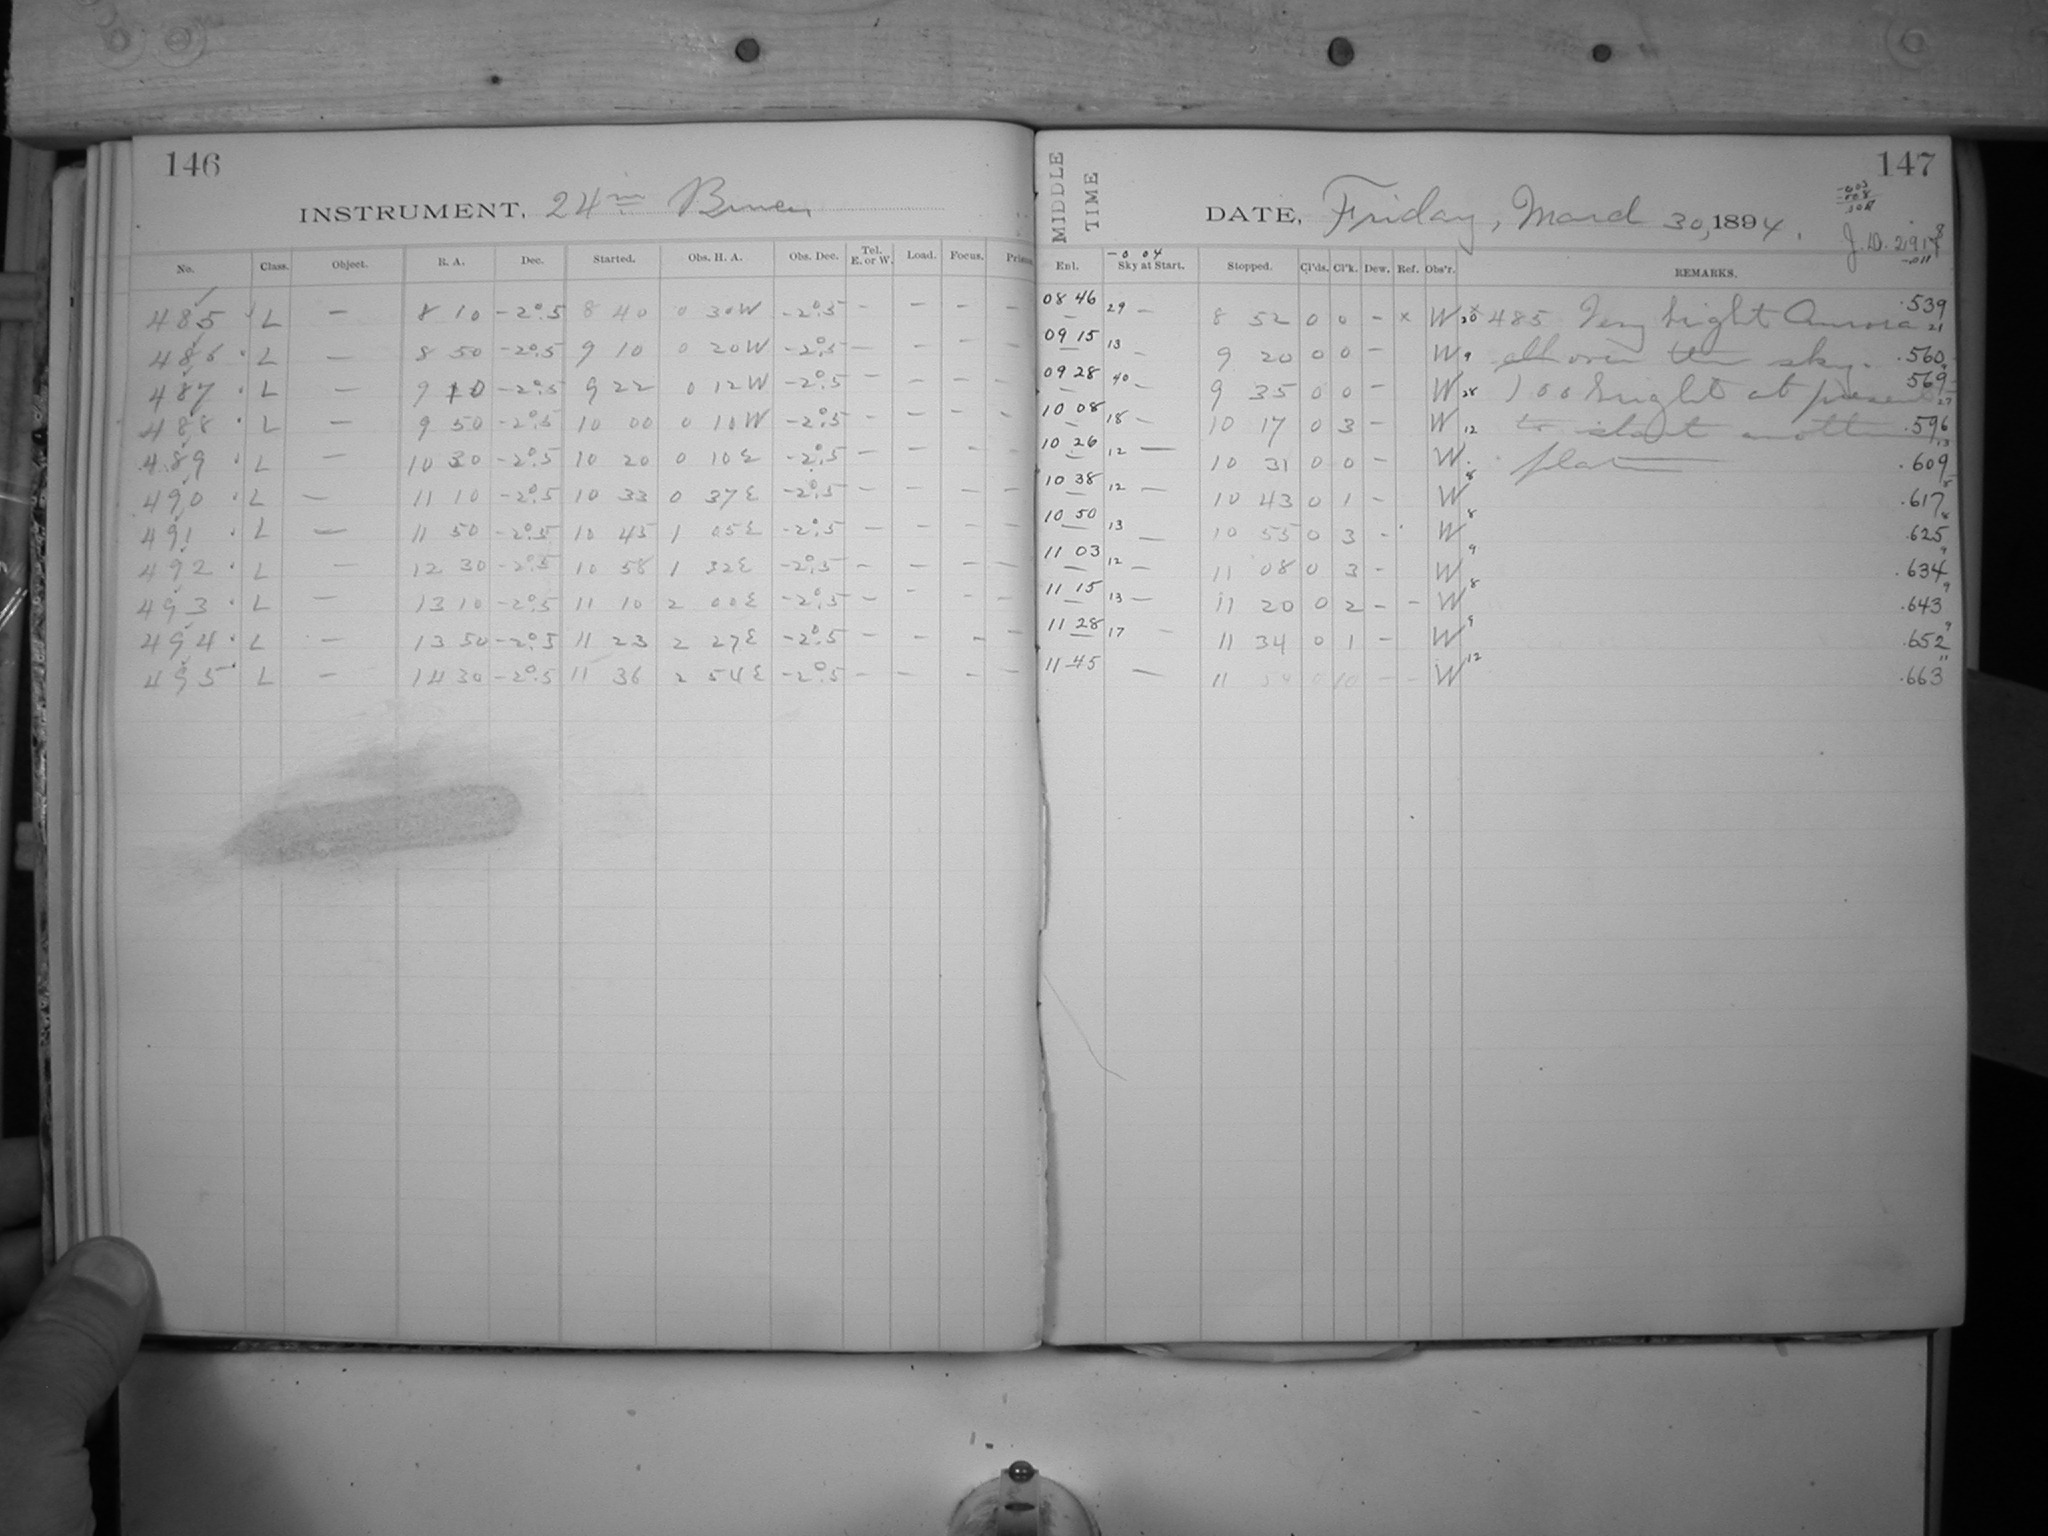 146
INSTRUMENT, 24 in Bruce
No. Class. Object. R. A. Dec. Started. Obs. H. A. Obs. Dec. Tel. E. or W. Load. Focus.
485 L — 8 10 -2°.5 8 40 0 30W -2°.5 — — — —
486 L — 8 50 -2°.5 9 10 0 20W -2°.5 — — — —
487 L — 9 10 -2°.5 9 22 0 12W -2°.5 — — — —
488 L — 9 50 -2°.5 10 00 0 10W -2°.5 — — — —
489 L — 10 30 -2°.5 10 20 0 10E -2°.5 — — — —
490 L — 11 10 -2°.5 10 33 0 37E -2°.5 — — — —
491 L — 11 50 -2°.5 10 45 1 05E -2°.5 — — — —
492 L — 12 30 -2°.5 10 58 1 32E -2°.5 — — — —
493 L — 13 10 -2°.5 11 10 2 00E -2°.5 — — — —
494 L — 13 50 -2°.5 11 23 2 27E -2°.5 — — — —
495 L — 14 30 -2°.5 11 36 2 54E -2°.5 — — — —
147
MIDDLE TIME
DATE, Friday, March 30, 1894.
J.D. 291
-.011
-0 04
Enl. Sky at Start. Stopped. Cl'ds. Cl'k. Dew. Ref. Obs'r. REMARKS.
08 46 29 — 8 52 0 0 — x W 20 x 485 Very bright Aurora .539 21
09 15 13 — 9 20 0 0 — W 9 all over the sky. .560
09 28 40 — 9 35 0 0 — W 28 Too bright at present .569 27
10 08 18 — 10 17 0 3 — W 12 to start another .596 13
10 26 12 — 10 31 0 0 — W 8 plate .609
10 38 12 — 10 43 0 1 — W 8 .617 8
10 50 13 — 10 55 0 3 — W 9 .625
11 03 12 — 11 08 0 3 — W 8 .634 9
11 15 13 — 11 20 0 2 — — W 9 .643 9
11 28 17 — 11 34 0 1 — W 12 .652 9
11 45 — 11 54 0 10 — — W .663 11